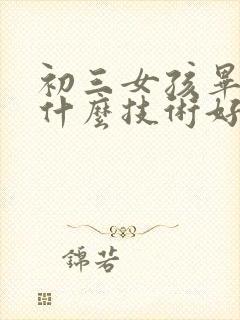 初三女孩畢
什麼技術好
錦若